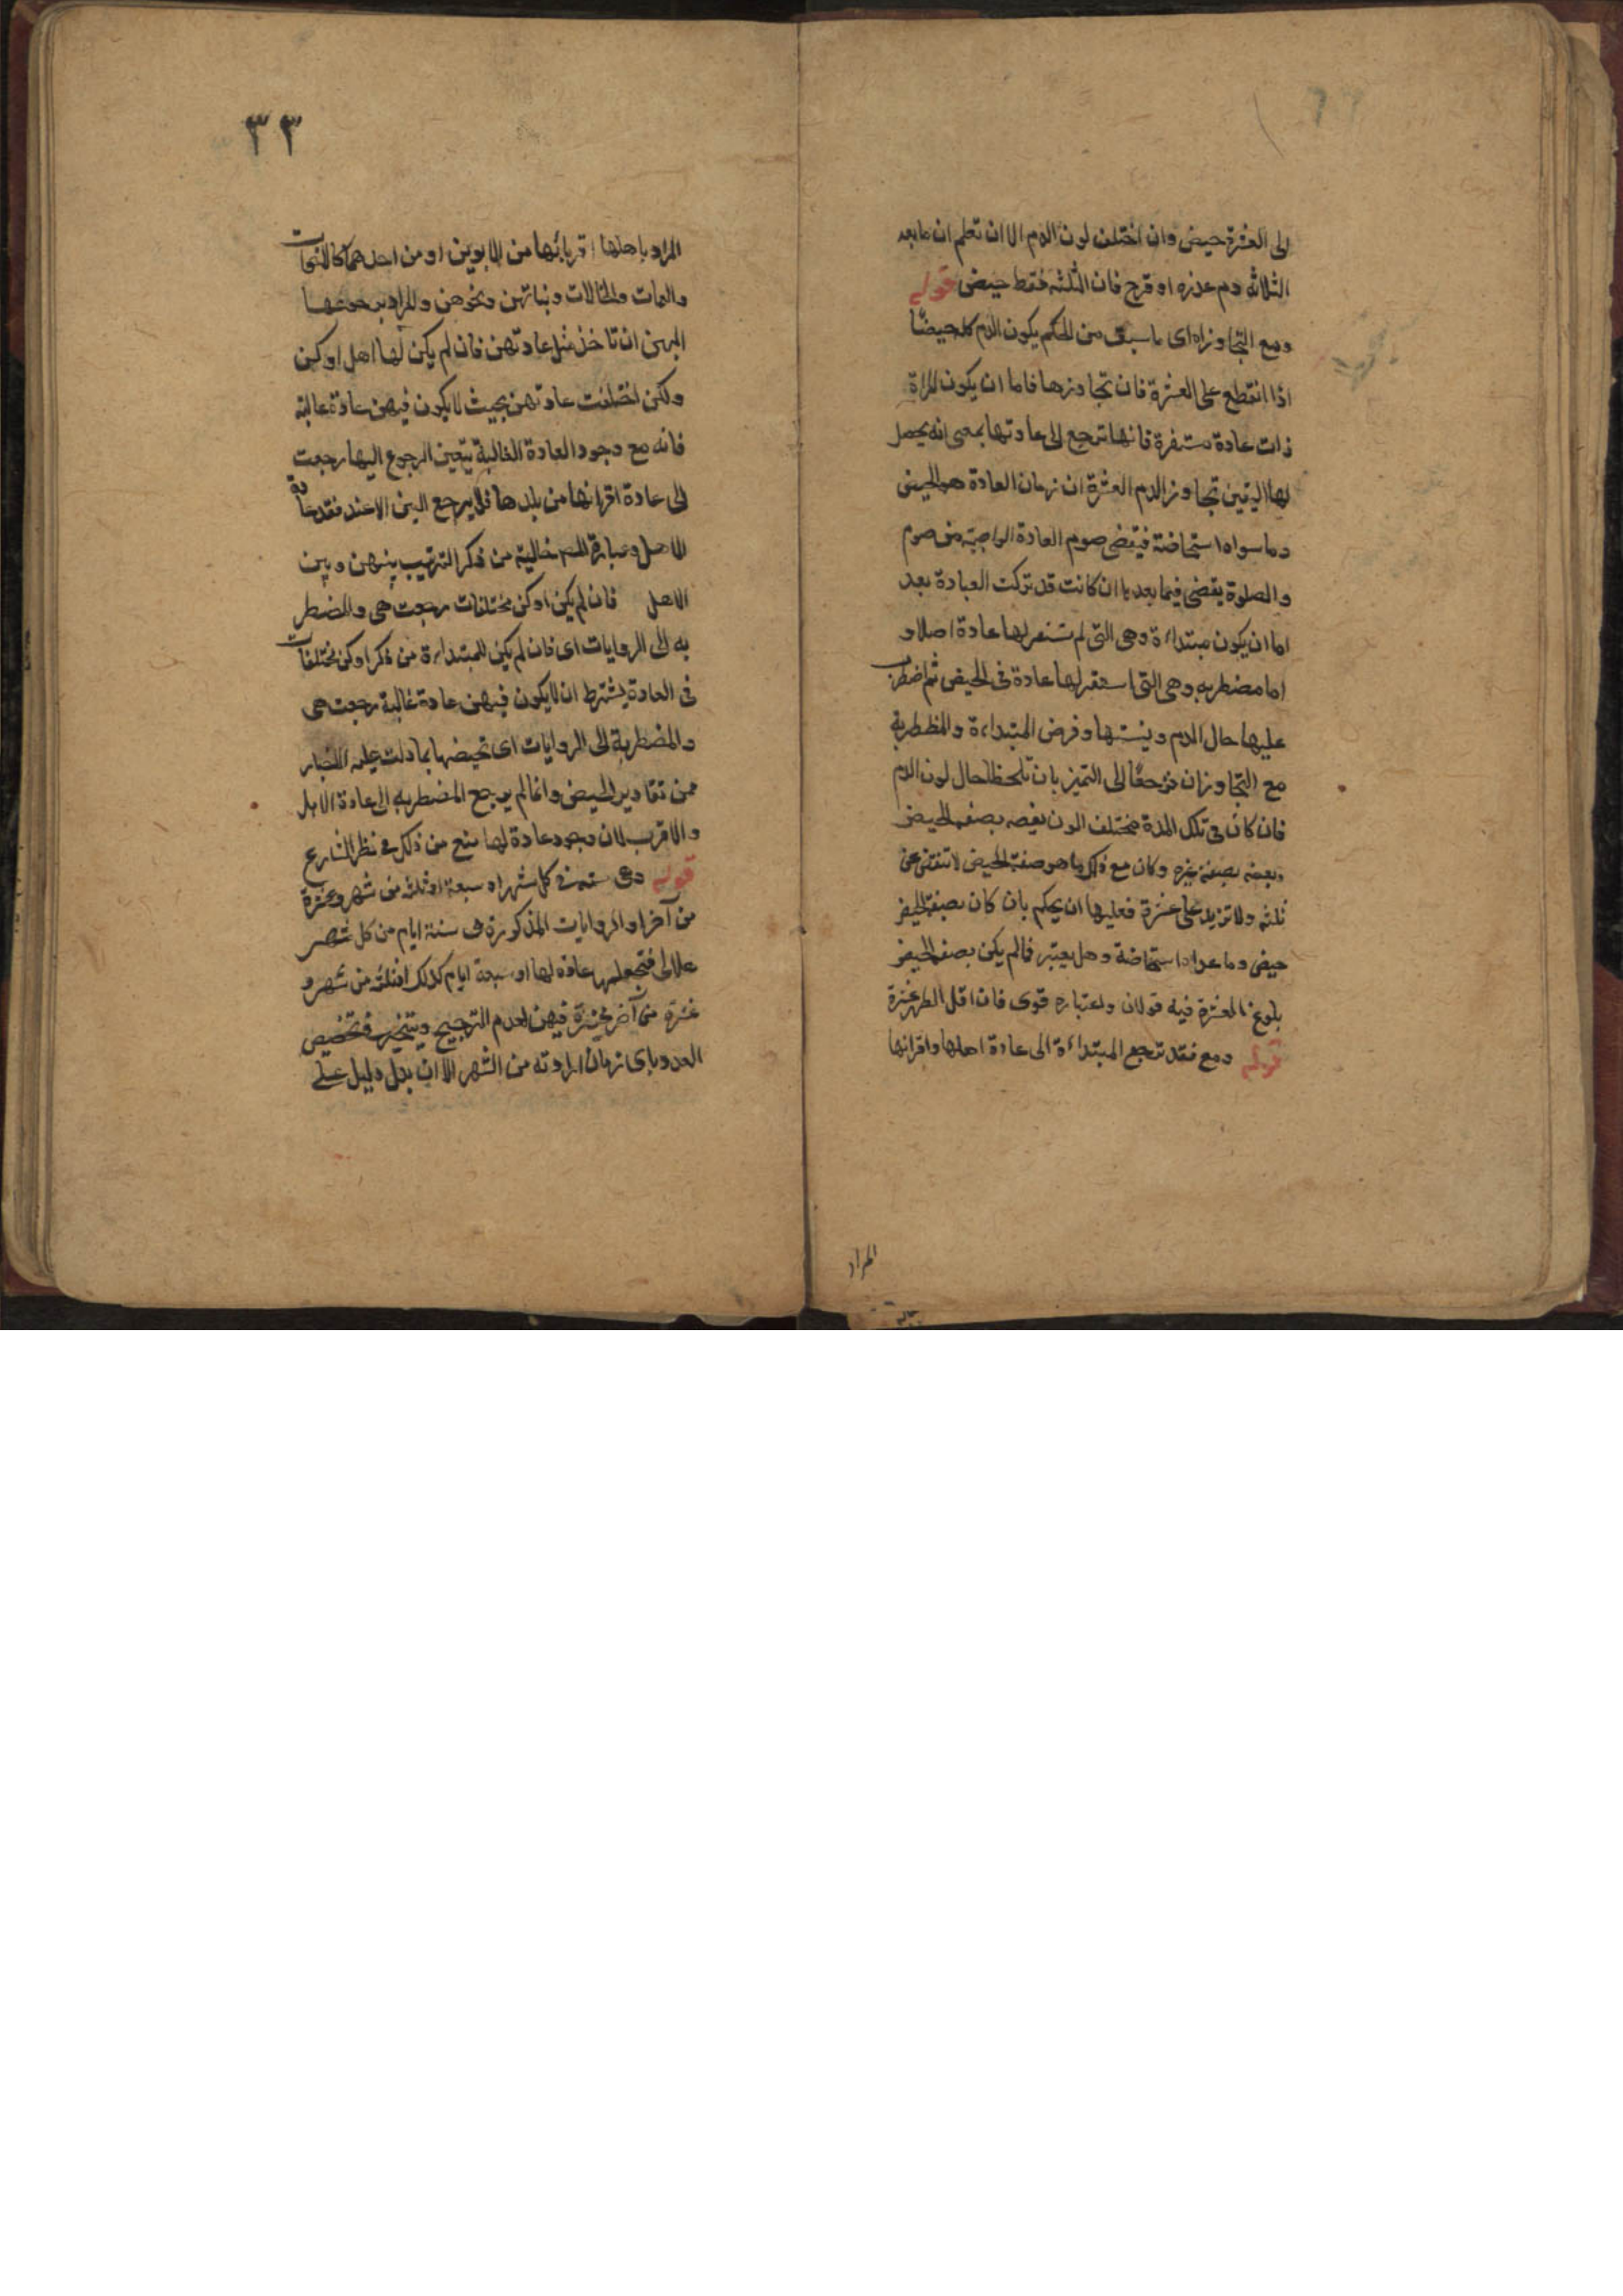 الى العشرة حيض وان اختلف لون الدم الا ان تعلم ان ما بعد
الثلاثة دم عذره او قرح فان الثلثه فقط حيض قوله
ومع التجاوزاه اى ما سبق من الحكم يكون الدم كله حيضًا
اذا انقطع على العشرة فان تجاوزها فاما ان يكون المراة
ذات عادة مستقرة فانها ترجع الى عادتها بمعنى انه يحصل
لها اليقين تجاوز الدم العشرة ان زمان العادة هو الحيض
وما سواه استحاضة فيقضى صوم العادة الواجبة من صوم
والصلوة يقضى فيما بعدها ان كانت قد تركت العبادة بعد
اما ان يكون مبتداءة وهى التى لم تستقر لها عادة اصلا و
اما مضطربه وهى التى استقر لها عادة فى الحيض ثم اضطرب
عليها حال الدم ونسيتها وفرض المبتداءة والمظطربة
مع التجاوزان ترجعا الى التميز بان تلحظا حال لون الدم
فان كان فى تلك المدة مختلف الون بعضه بصفة الحيض
وبعضه بصفة غيره وكان مع ذلك ما هو صفة الحيض لا تنقص عن
ثلثه ولا تزيد على عشرة فعليها ان يحكم بان كان بصفة الحيض
حيض وما عداه استحاضة وهل يعتبر فما لم يكن بصفة الحيض
بلوغ العشرة فيه قولان واعتباره قوى فان اقل الطهر عشرة
قوله ومع فقد ترجع المبتداءة الى عادة اهلها واقرانها
المراد
٣٣
المراد باهلها اقربائها من الابوين او من احدهما كالاخوات
والعمات والخالات وبناتهن ونحوهن والمراد برجوعها
اليهن ان تاخذ مثل عادتهن فان لم يكن لها اهل او كن
ولكن اختلفت عادتهن بحيث لا يكون فيهن عادة غالبة
فانه مع وجود العادة الغالبة يتعين الرجوع اليها رجعت
الى عادة اقرانها من بلدها فلا يرجع اليهن الا عند فقد عادة
الاهل وعبارة المص خالية من ذكر الترتيب بينهن وبين
الاهل فان لم يكن او كن مختلفات رجعت هى والمضطر
به الى الروايات اى فان لم يكن للمبتداءة من ذكر او كن مختلفات
فى العادة يشترط ان لا يكون فيهن عادة غالبة رجعت هى
والمضطربة الى الروايات اى تحيضها بما دلت عليه الاخبار
من تقادير الحيض وانما لم يرجع المضطربه الى عادة الاهل
والاقرب لان وجود عادة لها منع من ذلك فى نظر الشارع
قوله وهى ستة فى كل شهر او سبعة او ثلثه من شهر وعشرة
من آخر او الروايات المذكورة هى ستة ايام من كل شهر
هلالى فتجعلها عادة لها او سبعة ايام كذلك او ثلثه من شهر و
عشرة من آخر مخيرة فيهن لعدم الترجيح ويتخير فى تخصيص
العدد باى زمان ارادته من الشهر الا ان يدل دليل على